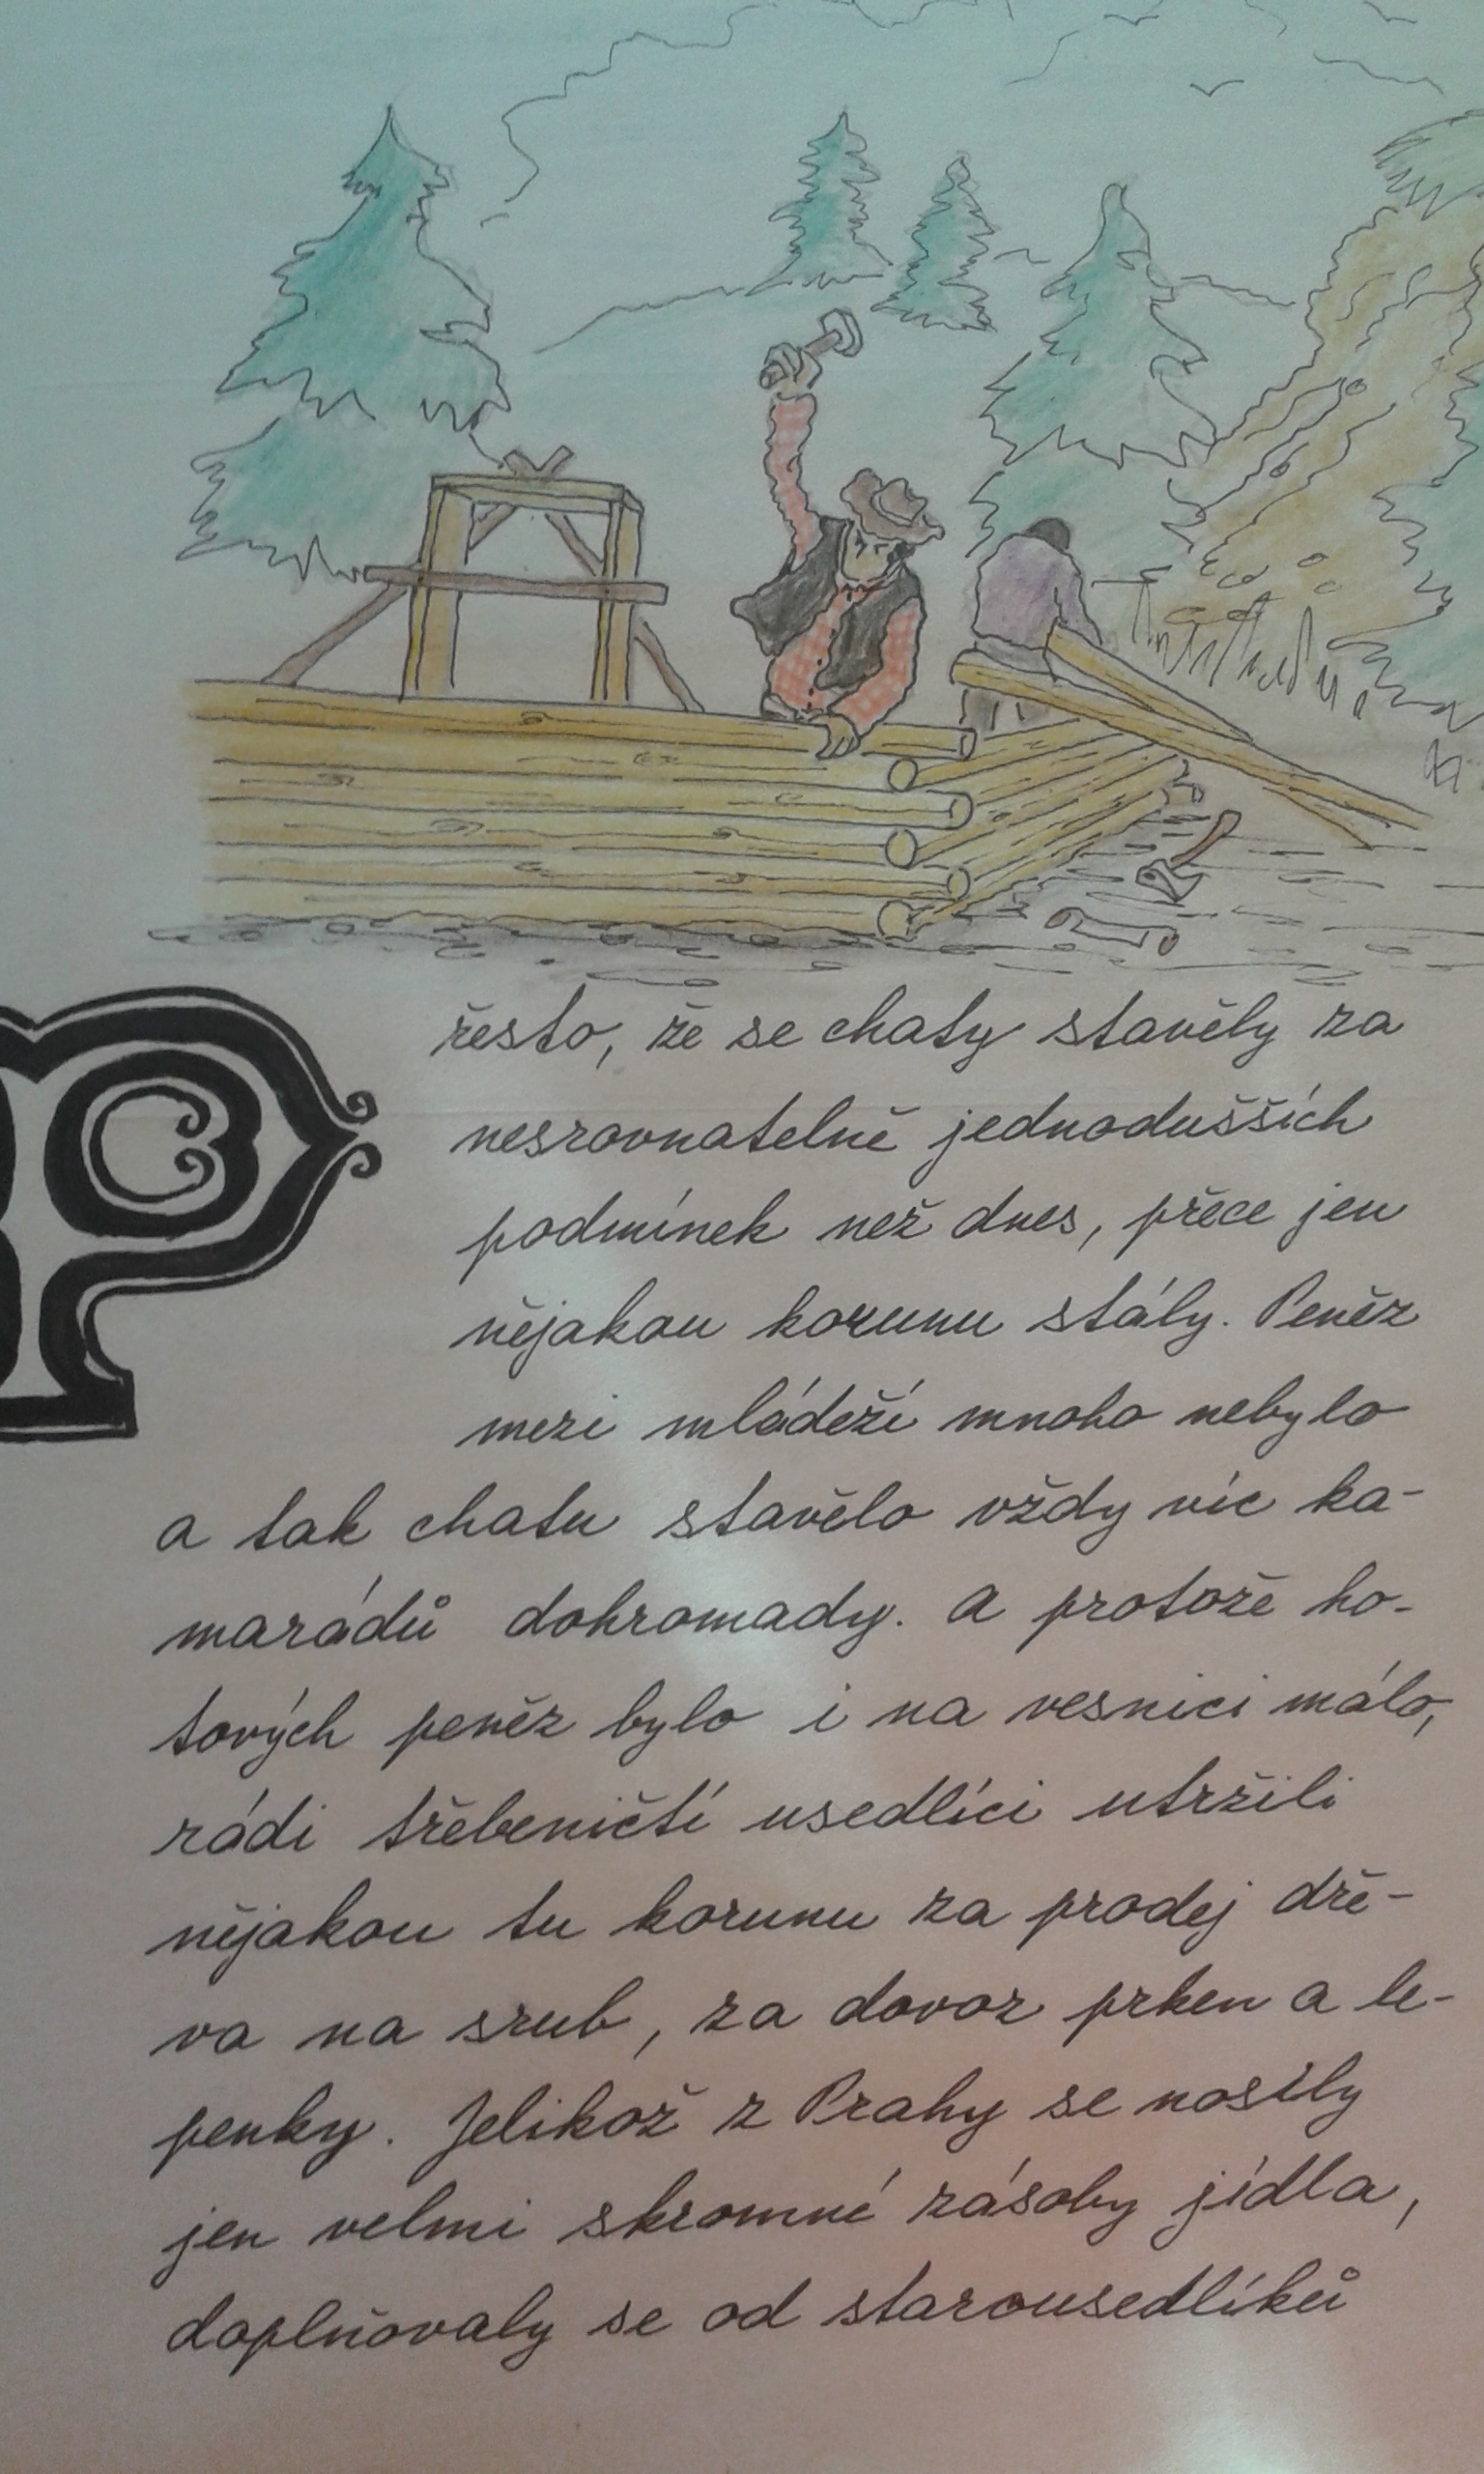 Přesto, že se chaty stavěly za
nesrovnatelně jednodušších
podmínek než dnes, přece jen
nějakou korunu stály. Peněz
mezi mládeží mnoho nebylo
a tak chatu stavělo vždy víc ka-
marádů dohromady. A protože ho-
tových peněz bylo i na vesnici málo,
rádi třebeničtí usedlíci utržili
nějakou tu korunu za prodej dře-
va na srub, za dovoz prken a le-
penky. Jelikož z Prahy se nosily
jen velmi skromné zásoby jídla,
doplňovaly se od starousedlíků